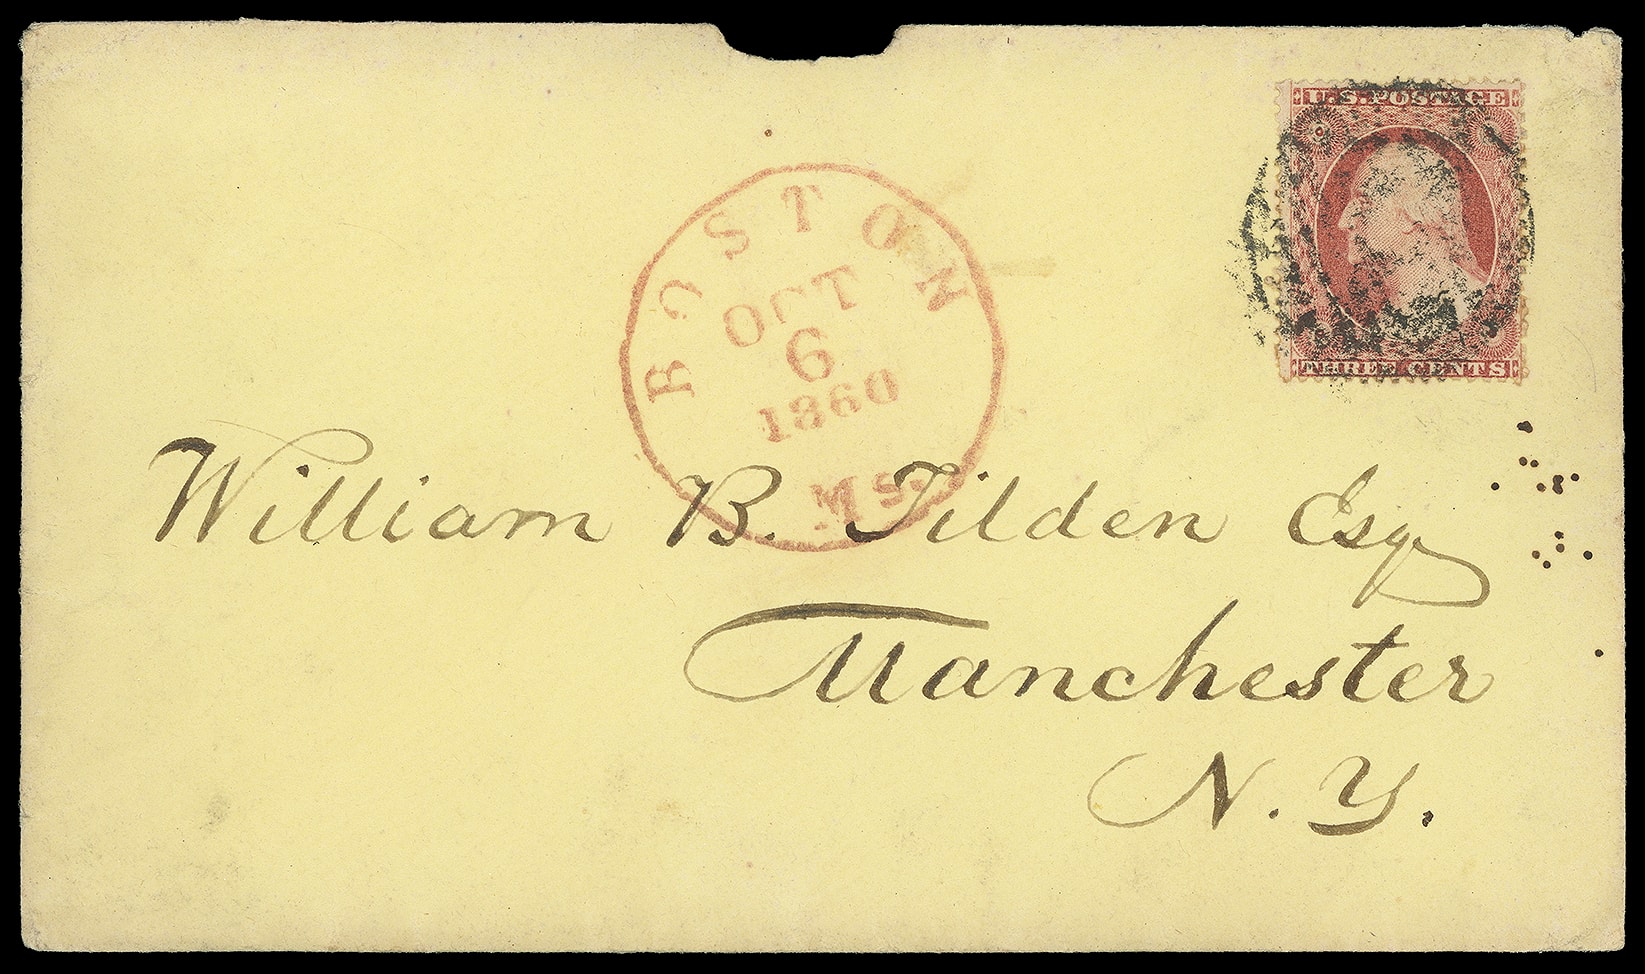 U.S. POSTAGE
THREE CENTS
BOSTON
OCT
6
1860
MS.
William B. Tilden Esq
Manchester
N. Y.